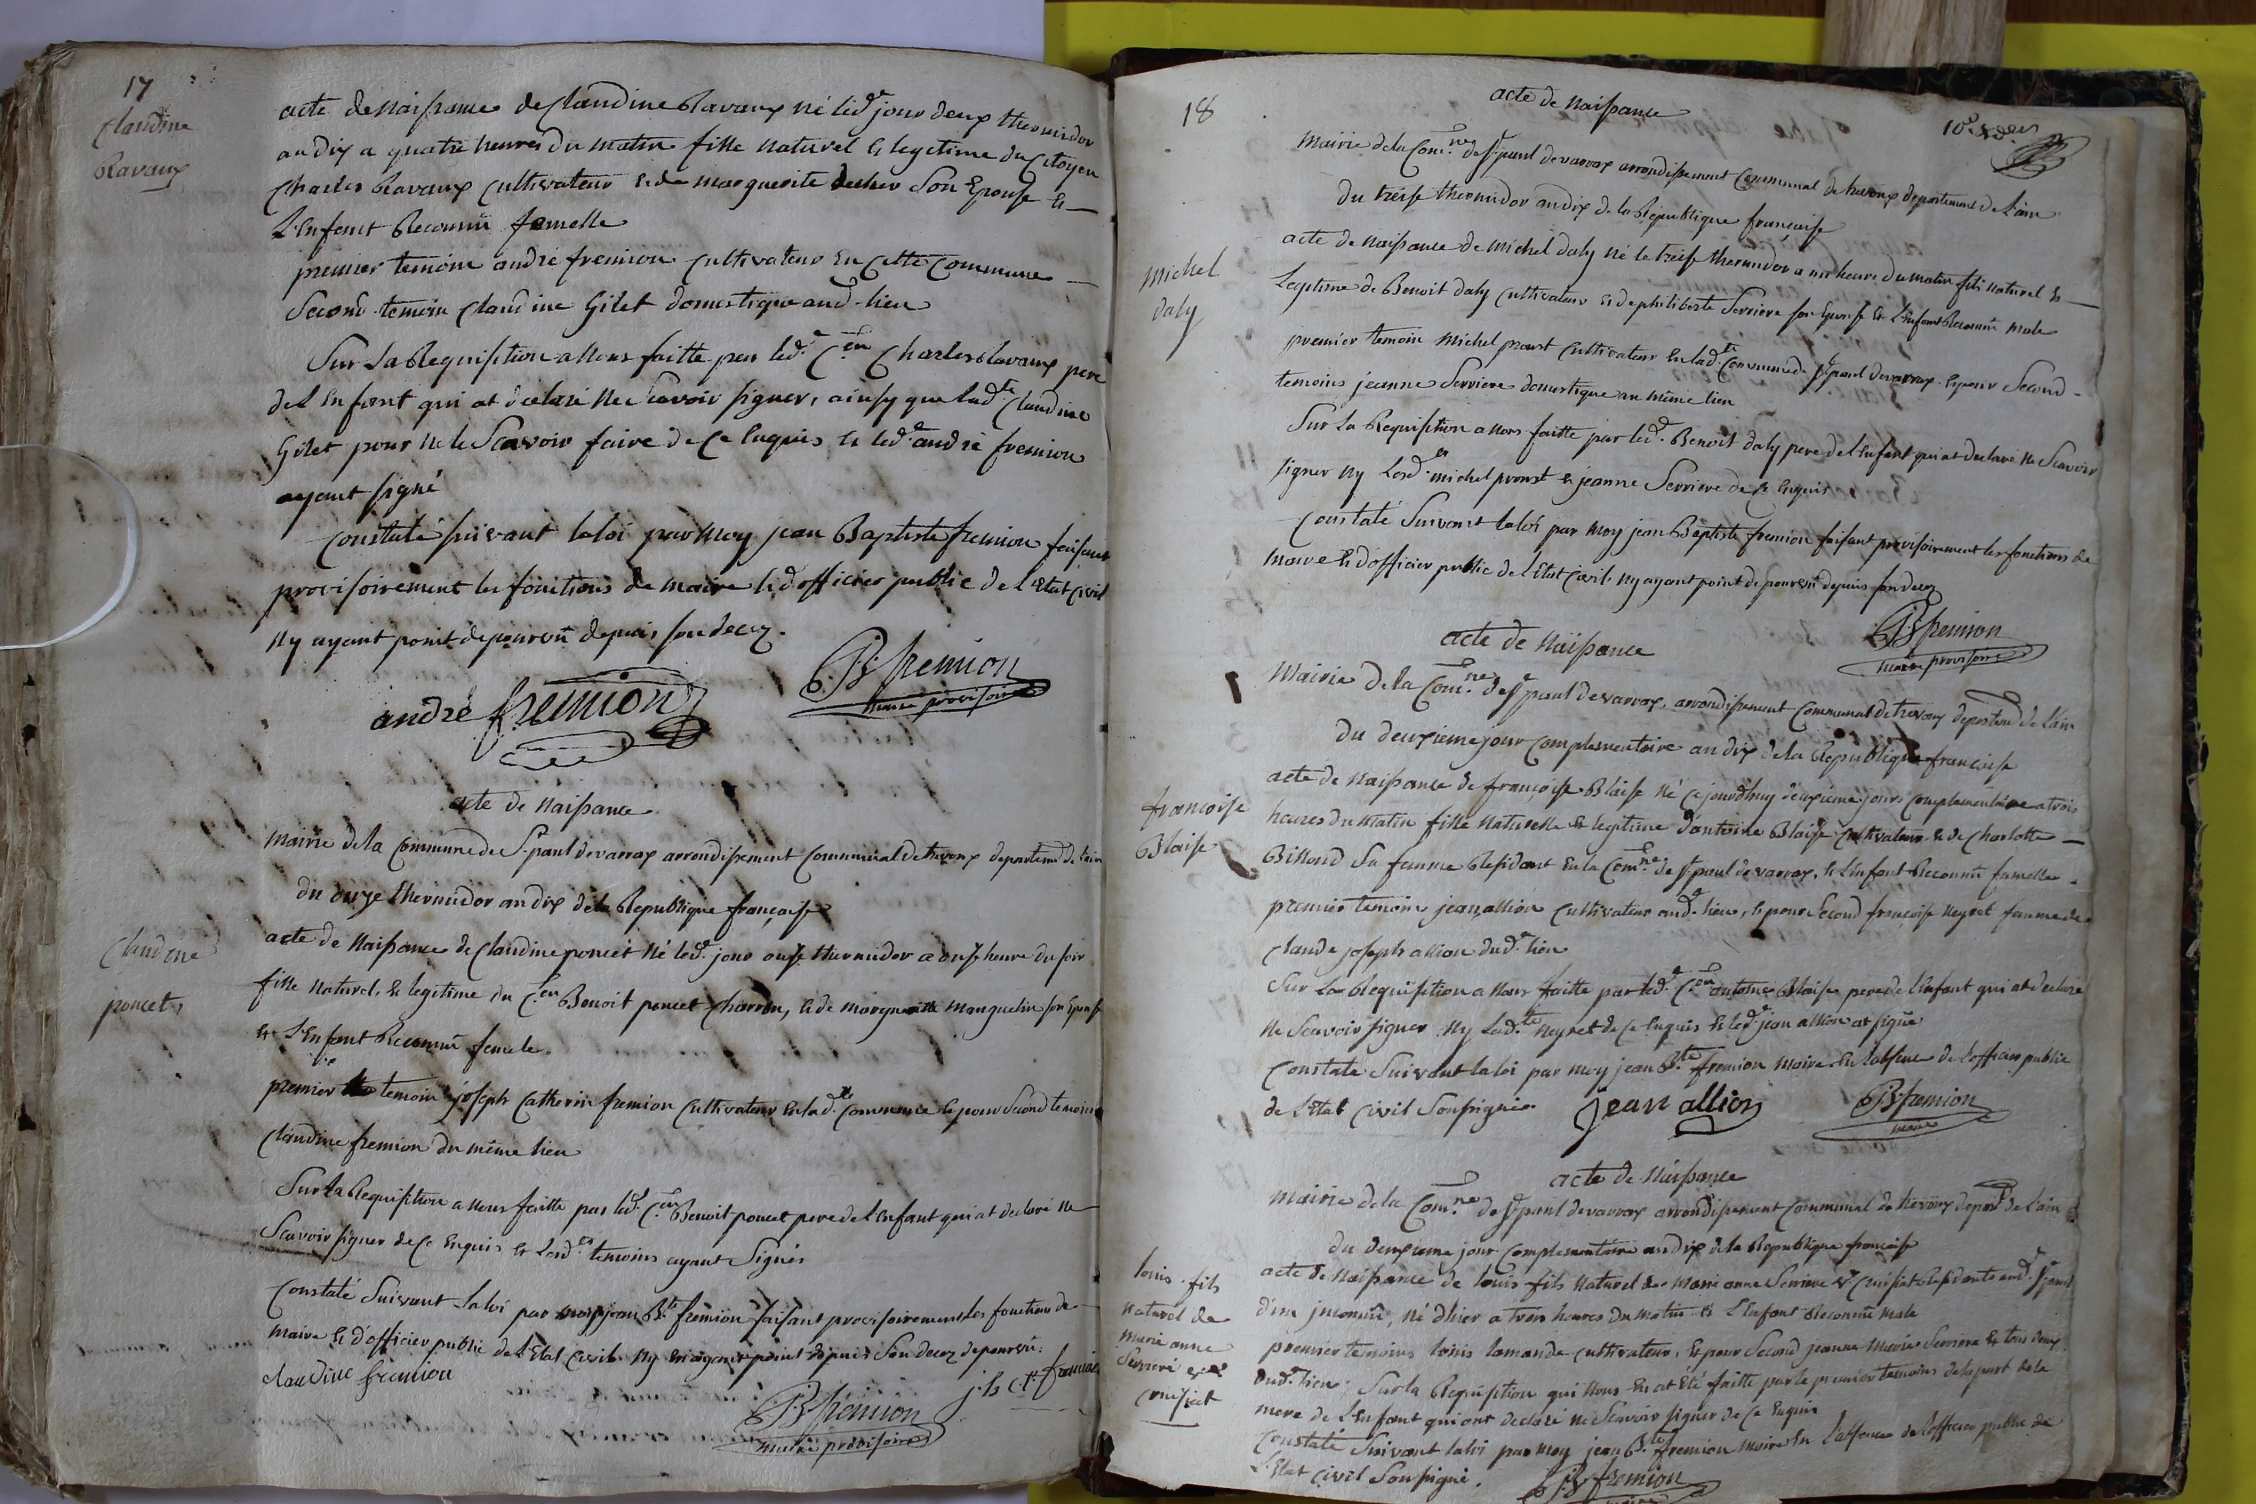 17
Claudine
Ravaux
acte de Naissance de Claudine Ravaux né led.e jour deux thermidor
an dix a quatre heures du matin fille naturel & legitime du Citoyen
Charles Ravaux Cultivateur & de marguerite Son Epouse &
L'Enfant Reconnû femelle
premier temoin andré fremion Cultivateur En Cette Commune
Second temoin Claudine Gilet domestique aud. lieu
Sur La Requisition a Nous faitte par led. C.en Charles Ravaux pere
de L'Enfant qui at déclaré Ne Scavoir signer, ainsy que Lad.te Claudine
Gilet pour Ne le Scavoir faire de Ce Enquis & led.e andré fremion
ayant signé
Constaté suivant la loi par Moy jean Baptiste fremion faisant
provisoirement les fonctions de maire & d'officier public de l'Etat Civil
Ny ayant point de pourvû depuis son decez.
andré fremion
J.B fremion
maire provisoire
acte de Naissance
Mairie de la Commune de S.t paul de varax arrondissement Communal de trevoux departem.t de L'ain
du onze thermidor an dix de la Republique française
Claudine
poncet
acte de Naissance de Claudine poncet Né led.e jour onze thermidor a onze heure du soir
fille Naturel, & legitime du C.en Benoit poncet Charron, & de marguerite manguelin son Epouse
& L'Enfant Reconnû femele.
premier temoin joseph Catherin fremion Cultivateur En lad.te Commune & pour Second temoins
Claudine fremion du même lieu
Sur La Requisition a Nous faitte par led. C.en Benoit poncet pere de L'Enfant qui at declaré ne
Scavoir signer de Ce Enquis & Lesd.es temoins ayant Signés
Constaté Suivant La loi par moy jean B.te fremion faisant provisoirement les fonctions de
maire & d'officier public de L'Etat Civil Ny ayant point depuis Son decez de pourvû.
claudine fremion
j.h c.n fremion
J.B fremion
maire provisoire
18
acte de Naissance
Mairie de la Com.ne de S.t paul de varax arrondissement Communal de trevoux departement de L'ain
du treise thermidor an dix de la Republique française
Michel
daly
acte de Naissance de Michel daly Né le treise thermidor a heure du matin fils naturel &
Legitime de Benoit daly Cultivateur & de philiberte Serriere son Epouse & L'Enfant Reconnû male
premier temoin Michel proust Cultivateur En lad.te Commune de S.t paul de varax & pour Second
temoins jeanne Serriere domestique au même lieu
Sur La Requisition a Nous faitte par led.e Benoit daly pere de l'Enfant qui at declaré Ne Scavoir
signer Ny Lesd.es michel proust & jeanne Serriere de Ce Enquis
Constaté Suivant la loi par Moy jean Baptiste fremion faisant provisoirement les fonctions de
maire & d'officier public de l'Etat Civil Ny ayant point de pourvû depuis son decez
J.B fremion
maire provisoire
acte de Naissance
Mairie de La Com.ne de S.t paul de varax, arrondissement Communal de trevoux departem.t de L'ain
du deuxieme jour Complementaire an dix de la Republique française
françoise
Blaise
acte de Naissance de françoise Blaise Né Ce jourdhuy deuxieme jour Complementaire a trois
heures du Matin fille Naturelle & legitime d'antoine Blaise Cultivateur & de Charlotte
Billoud Sa femme Residant En la Com.ne de S.t paul de varax, & L'Enfant Reconnû famelle
premier temoin jean allion Cultivateur aud.e lieu, & pour Second françoise Neyret femme de
Claude joseph allion dud.e lieu
Sur La Requisition a Nous faitte par led.e C.en antoine Blaise pere de l'Enfant qui at declaré
Ne Scavoir signer Ny Lad.te Neyret de Ce Enquis & led.e jean allion at signé
Constaté Suivant la loi par moy jean B.te fremion Maire En l'absence de l'officier public
de L'Etat Civil Soussigné.
jean allion
J.B fremion
maire
acte de Naissance
Mairie de la Com.ne de S.t paul de varax arrondissement Communal de trevoux depart.t de L'ain
du deuxieme jour Complementaire an dix de la Republique française
louis fils
Naturel de
Marie anne
Serriere
cruisiat
acte de Naissance de louis fils Naturel de Marie anne Serriere Cruisiat Residante aud.e S.t paul
d'un jnconnû, Né d'hier a trois heures du Matin & L'Enfant Reconnû Male
premier temoins louis lamande Cultivateur, & pour Second jeanne Marie Serriere & tous deux
dud.e lieu, Sur la Requisition qui Nous En at Eté faitte par le premier temoins de la part de la
mere de L'Enfant qui ont declaré Ne Scavoir signer de Ce Enquis
Constaté Suivant la loi par Moy jean B.te fremion Maire En l'absence de l'officier public de
L'Etat Civil Soussigné.
J.B fremion